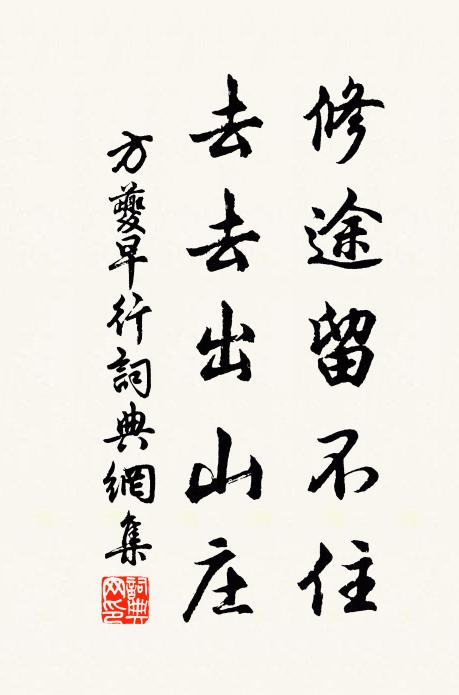 修途留不住
去去出山庄
方夔早行詞典網集
詞典网印